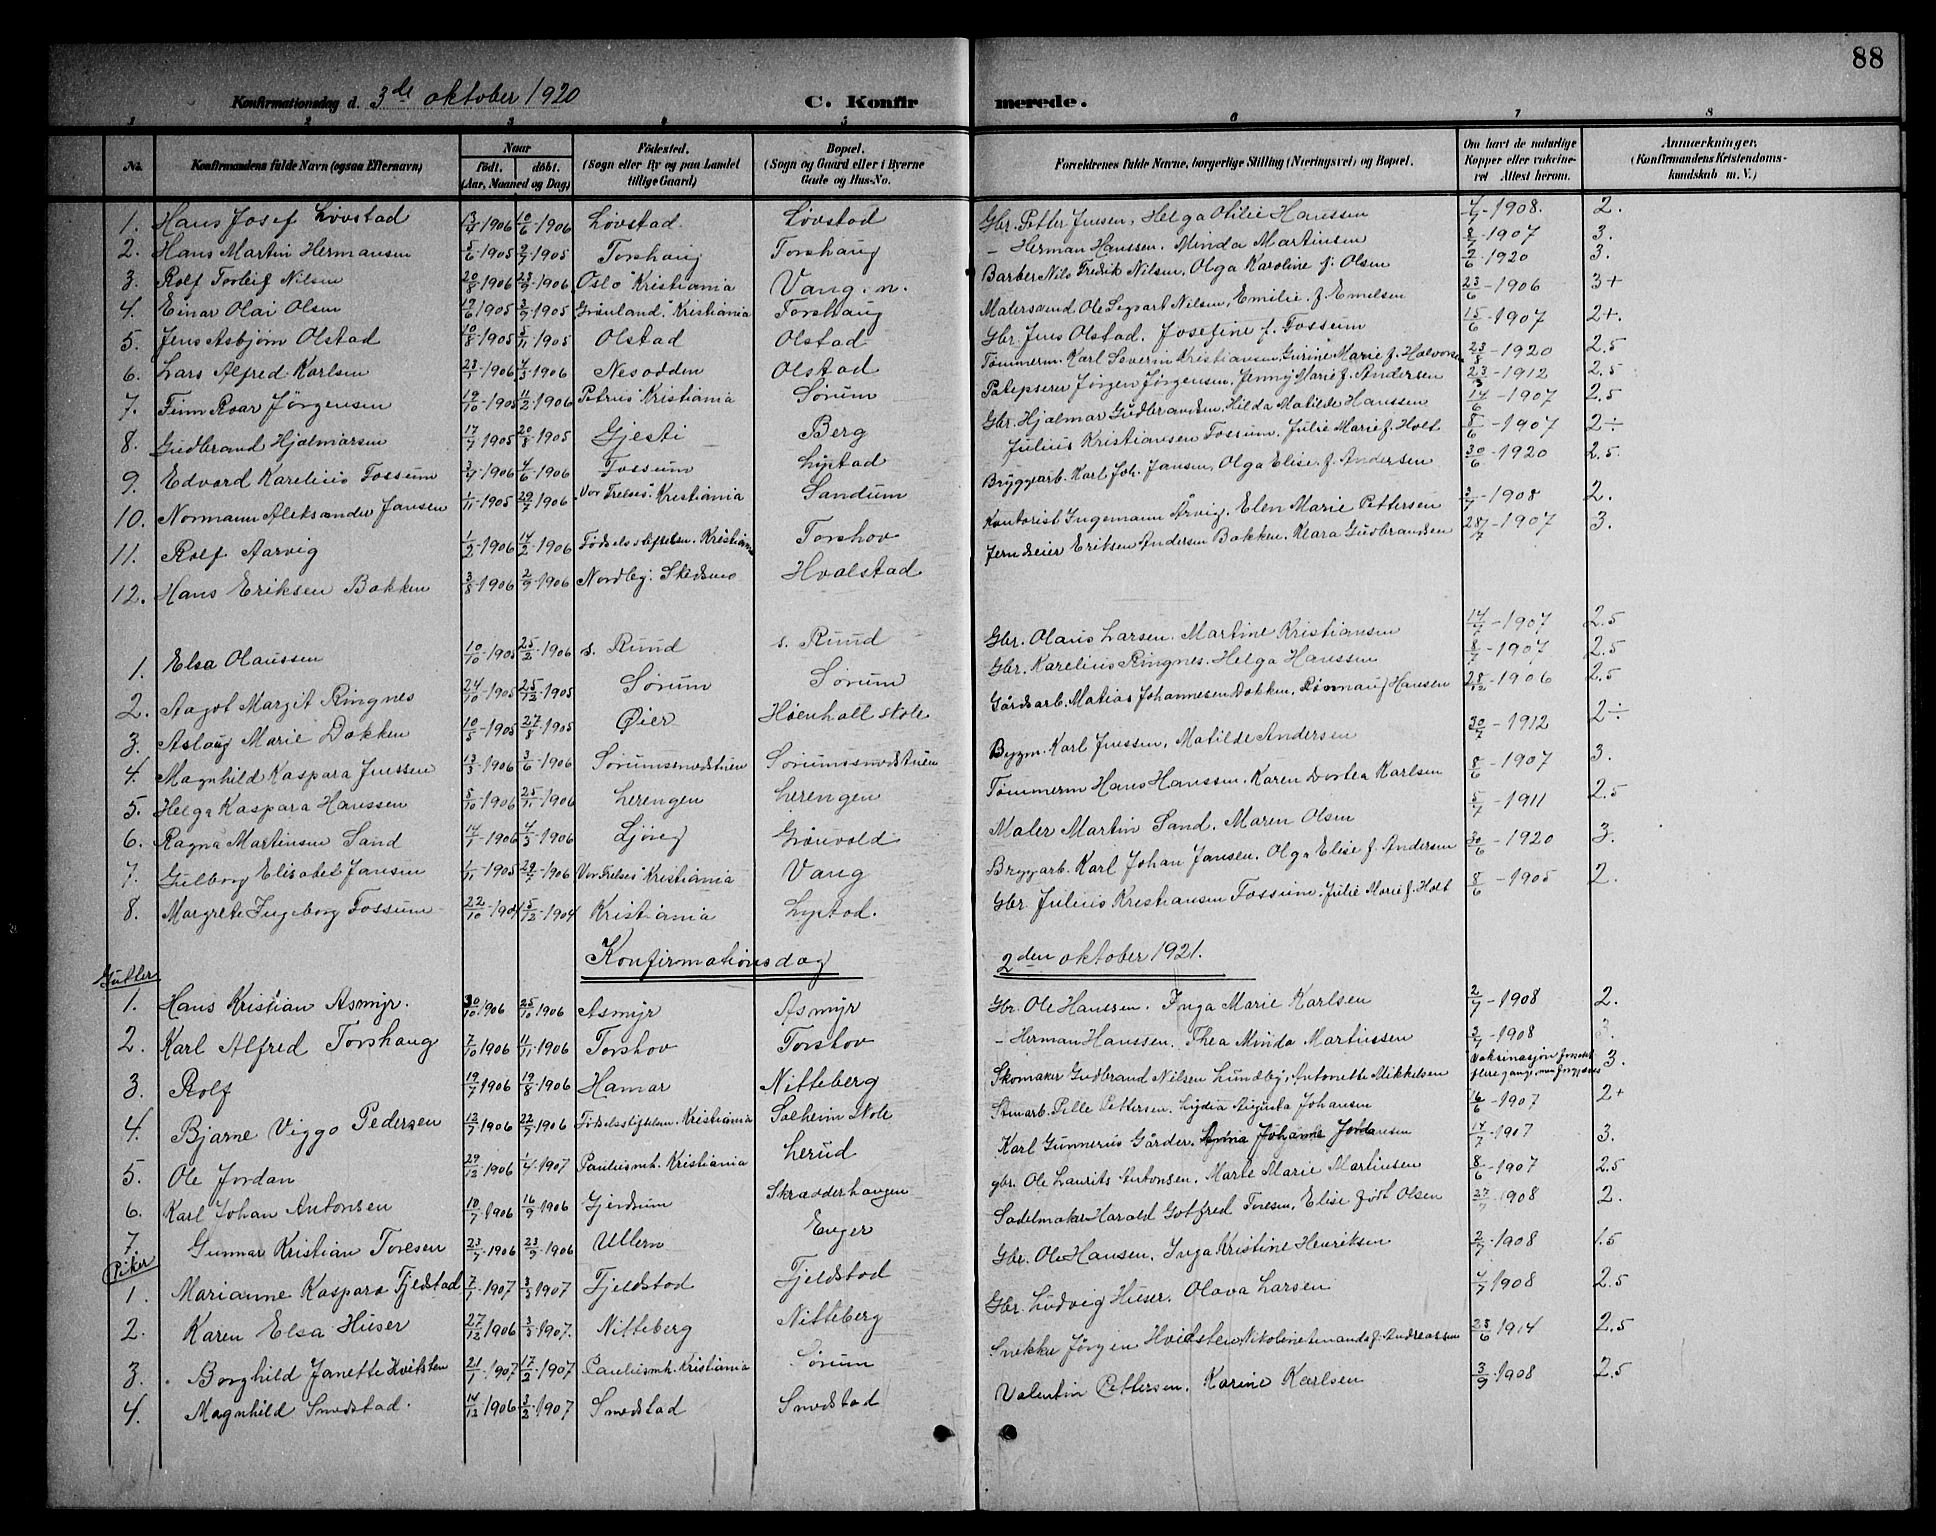 88
Konfirmationsdag d. 3de oktober 1920 C. Konfir merede.
1 2 3 4 5 6 7 8
No. Konfirmandens fulde Navn (ogsaa Efternavn) Naar født. døbt. (Aar, Maaned og Dag) Fødested. (Sogn eller By og paa Landet tillige Gaard) Bopæl. (Sogn og Gaard eller i Byerne Gade og Hus-No. Forældrenes fulde Navne, borgerlige Stilling (Næringsvei) og Bopæl. Om havt de naturlige Kopper eller vaccineret Attest herom. Anmærkninger. (Konfirmandens Kristendomskundskab m. V.)
1. Hans Josef Lövstad 13/4 1906 10/6 1906 Lövstad Lövstad Gbr. Petter Jensen, Helga Otilie Hanssen 4/7 - 1908. 2.
2. Hans Martin Hermansen 5/6 1905 2/7 1905 Torshaug Torshaug - Herman Hanssen. Minda Martinsen 8/7 - 1907 3.
3. Rolf Torleif Nilsen 20/8 1906 23/9 1906 Oslo Kristiania Vang. n. Barber Nils Fredrik Nilsen, Olga Karoline f. Olsen 2/6 - 1920 3.
4. Einar Olai Olsen 19/6 1905 3/9 1905 Grønland. Kristiania Torshaug Matersvend Ole Sigvart Nilsen, Emilie f. Emilsen 23/6 - 1906 3+
5. Jens Asbjørn Olstad 10/8 1905 5/11 1905 Olstad Olstad Gbr. Jens Olstad. Josefine f. Fossum 15/6 - 1907 2+.
6. Lars Alfred Karlsen 23/1 1906 4/3 1906 Nesodden Olstad Tømmerm. Karl Severin Kristiansen, Gurine Marie f. Halvorsen 23/8 - 1920 2.5
7. Finn Roar Jørgensen 19/10 1905 11/2 1906 Petrus Kristiania Sørum Jørgen Jørgensen, Jenny Marie f. Andersen 23/3 - 1912 2.5
8. Gudbrand Hjalmarsen 17/7 1905 20/8 1905 Gjesti Berg Gbr. Hjalmar Gudbrandsen, Hilda Matilde Hanssen 14/6 - 1907 2.5
9. Edvard Karelius Fossum 3/4 1906 4/6 1906 Fossum Lystad Julius Kristiansen Fossum. Julie Marie f. Holt 8/6 - 1907 2÷
10. Normann Aleksander Jansen 1/11 1905 29/7 1906 Vor Frelses. Kristiania Sandum Bryggearb. Karl Joh. Jansen, Olga Elise f. Andersen 30/6 - 1920 2.5
11. Rolf Aarvig 1/2 1906 14/2 1906 Fødselsstiftelsen. Kristiania Torshov Kontorist Ingemann Årvig. Elen Marie Pettersen 3/7 - 1908 2.
12. Hans Eriksen Bakken 3/8 1906 2/9 1906 Nordby. Skedsmo Hvalstad Eriksen Andersen Bakken. Klara Gudbrandsen 28/7 - 1907 3.
1. Elsa Olaussen 10/10 1905 25/2 1906 s. Ruud s. Ruud Gbr. Olaus Larsen. Martine Kristiansen 14/7 - 1907 2.5
2. Aagot Margit Ringnes 24/10 1905 25/12 1905 Sørum Sørum Gbr. Karelius Ringnes. Helga Hanssen 8/7 - 1907 2.5
3. Aslaug Marie Dokken 10/5 1905 27/8 1905 Øier Høenhall skole Gårdsarb. Matias Johannesen Dokken, Rønnaug Hansen 28/12 - 1906 2.5
4. Magnhild Kaspara Jenssen 13/3 1906 3/6 1906 Sørumssmedstuen Sørumssmedstuen Bygm. Karl Jenssen, Matilde Andersen 30/7 - 1912 2÷
5. Helga Kaspara Hanssen 5/10 1906 25/11 1906 Lerengen Lerengen Tømmerm Hans Hanssen. Karen Dortea Karlsen 8/6 - 1907 3.
6. Ragna Martinsen Sand 14/1 1906 4/3 1906 Ljörig Grønvold Maler Martin Sand. Maren Olsen 5/7 - 1911 2.5
7. Gulborg Elisabet Jansen 1/11 1905 29/7 1906 Vor Frelses Kristiania Vang Bryggarb. Karl Johan Jansen. Olga Elise f. Andersen 30/6 - 1920 3.
8. Margrete Ingeborg Fossum 22/10 1904 5/12 1904 Kristiania Lystad. Gbr Julius Kristiansen Fossum. Julie Marie f. Holt 8/6 - 1905 2.
Konfirmationsdag 2den oktober 1921.
Gutter
1. Hans Kristian Asmyr. 30/10 1906 25/10 1906 Asmyr Asmyr Gbr. Ole Hansen. Inga Marie Karlsen 2/7 - 1908 2.
2. Karl Alfred Torshaug 7/10 1906 11/11 1906 Torshov Torshov - Herman Hanssen. Thea Minda Martinsen 3/7 - 1908 3.
3. Rolf 19/7 1906 19/8 1906 Hamar Nitteberg Skomaker Gudbrand Nilsen Lundby, Antonette Mikkelsen Vaksinasjon flere gange, men 3.
4. Bjarne Viggo Pedersen 12/7 1906 22/7 1906 Fødselsstiftelsen. Kristiania Solheim skole Pelle Pettersen. Lydia Augusta Johansen 16/6 - 1907 2+
5. Ole Jordan 29/12 1906 1/4 1907 Paulusmh. Kristiania Lerud Karl Gunnerus Gårder. Anna Johanne Jordansen 17/7 - 1907 3.
6. Karl Johan Antonsen 10/7 1906 16/9 1906 Gjerdrum Skradderhaugen gbr. Ole Laurits Antonsen. Marte Marie Martinsen 8/6 - 1907 2.5
7. Gunnar Kristian Toresen 23/7 1906 23/9 1906 Ullern Enger Sadelmaker Harald Gotfred Toresen, Elise født Olsen 27/7 1908 2.
Piker
1. Marianne Kaspara Fjeldstad 7/1 1907 3/3 1907 Fjeldstad Fjeldstad Gbr. Ole Hansen. Inga Kristine Henriksen 2/7 - 1908 1.5
2. Karen Elsa Huser 27/12 1906 3/3 1907. Nitteberg Nitteberg Gbr. Ludvig Huser. Olava Larsen 4/7 1908 2.5
3. Borghild Janette Hvitsten 21/1 1907 17/2 1907 Paulusmh. Kristiania Sørum Snekker Jørgen Hvidsten, Nikoline f. Andreassen 25/6 1914 2.5
4. Magnhild Smedstad. 14/12 1906 3/2 1907 Smedstad Smedstad Valentin Pettersen. Karine Karlsen 3/9 1908 2.5